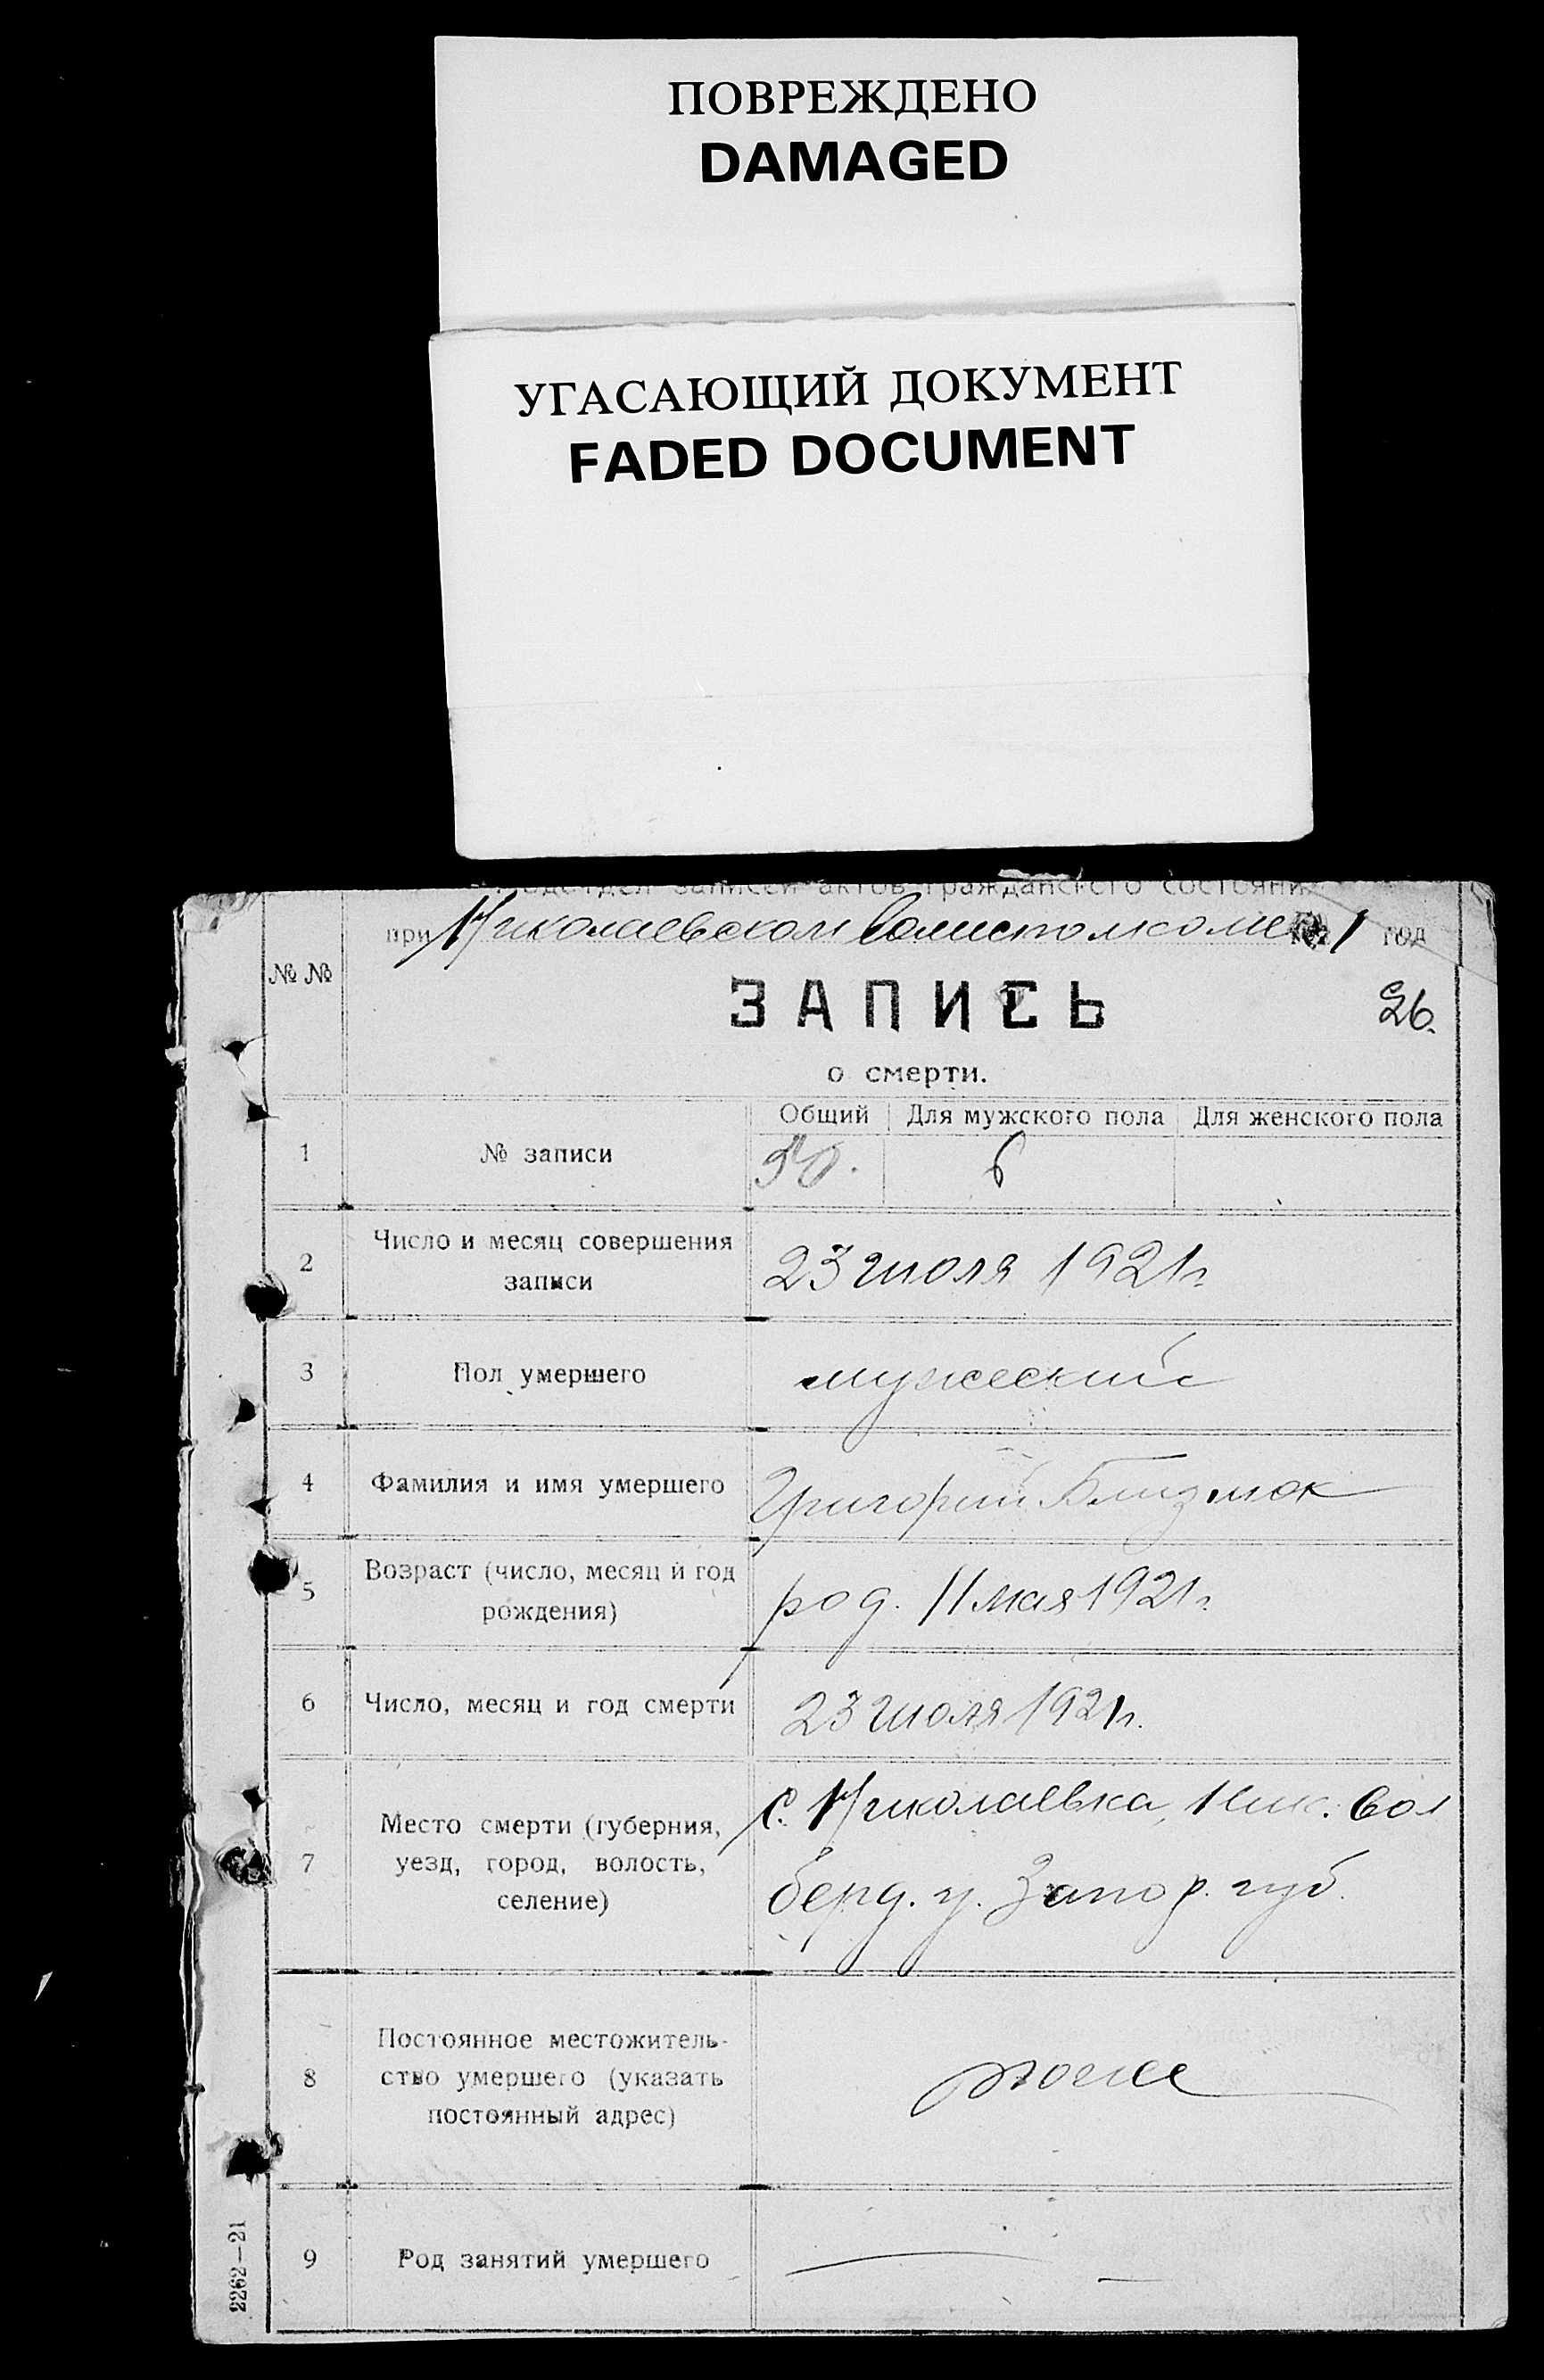 ПОВРЕЖДЕНО
DAMAGED
УГАСАЮЩИЙ ДОКУМЕНТ
FADED DOCUMENT
Подотдел записей актов гражданского состояния
при Николаевском Волисполкоме 1 год
№ №
ЗАПИСЬ
26.
о смерти.
Общий Для мужского пола Для женского пола
1 № записи 6
2 Число и месяц совершения записи 23 июля 1921 г.
3 Пол умершего мужеский
4 Фамилия и имя умершего Григорий
5 Возраст (число, месяц и год рождения) род. 11 мая 1921 г.
6 Число, месяц и год смерти 23 июля 1921 г.
7 Место смерти (губерния, уезд, город, волость, селение) с. Николаевка, Ник. вол
берд. у. Запор. губ.
8 Постоянное местожительство умершего (указать постоянный адрес) тоже
9 Род занятий умершего —
2262—21